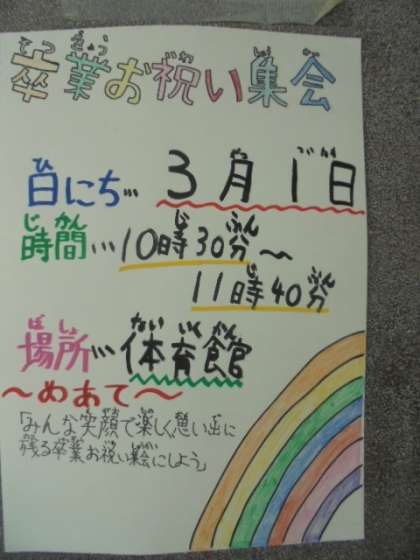 卒業お祝い集会
日にち…3月1日
時間…10時30分〜
11時40分
場所…体育館
〜めあて〜
「みんな笑顔で楽しく思い出に
残る卒業お祝い集会にしよう」